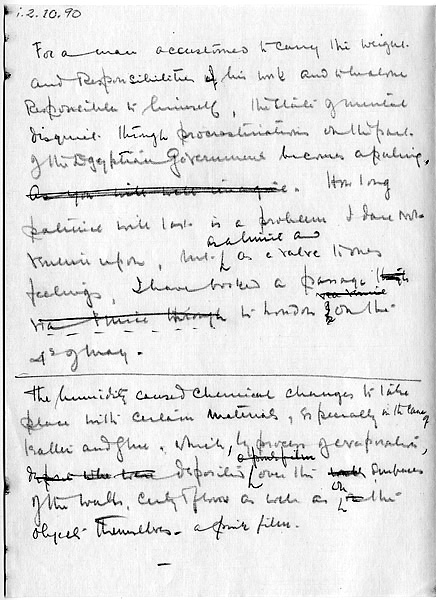 i.2.10.90
For a man accustomed to carry the weight
and Responsibilities of his work and to be alone
Responsible to himself, the state of mental
disquiet through procrastinations on the part
of the Egyptian Government becomes appalling,
as you will well imagine. How long
patience will last is a problem I dare not
venture upon, but as a valve to ones
a salmine and
feelings, I have booked a passage
via Venice
via Venice through to London for the
4th of May.
The humidity caused chemical changes to take
place with certain materials, especially in the case of
leather and glue, which, by process of evaporation,
a pink film
deposited over the surfaces
of the walls, ceiling & floors as well as on the
objects themselves - a pink film.